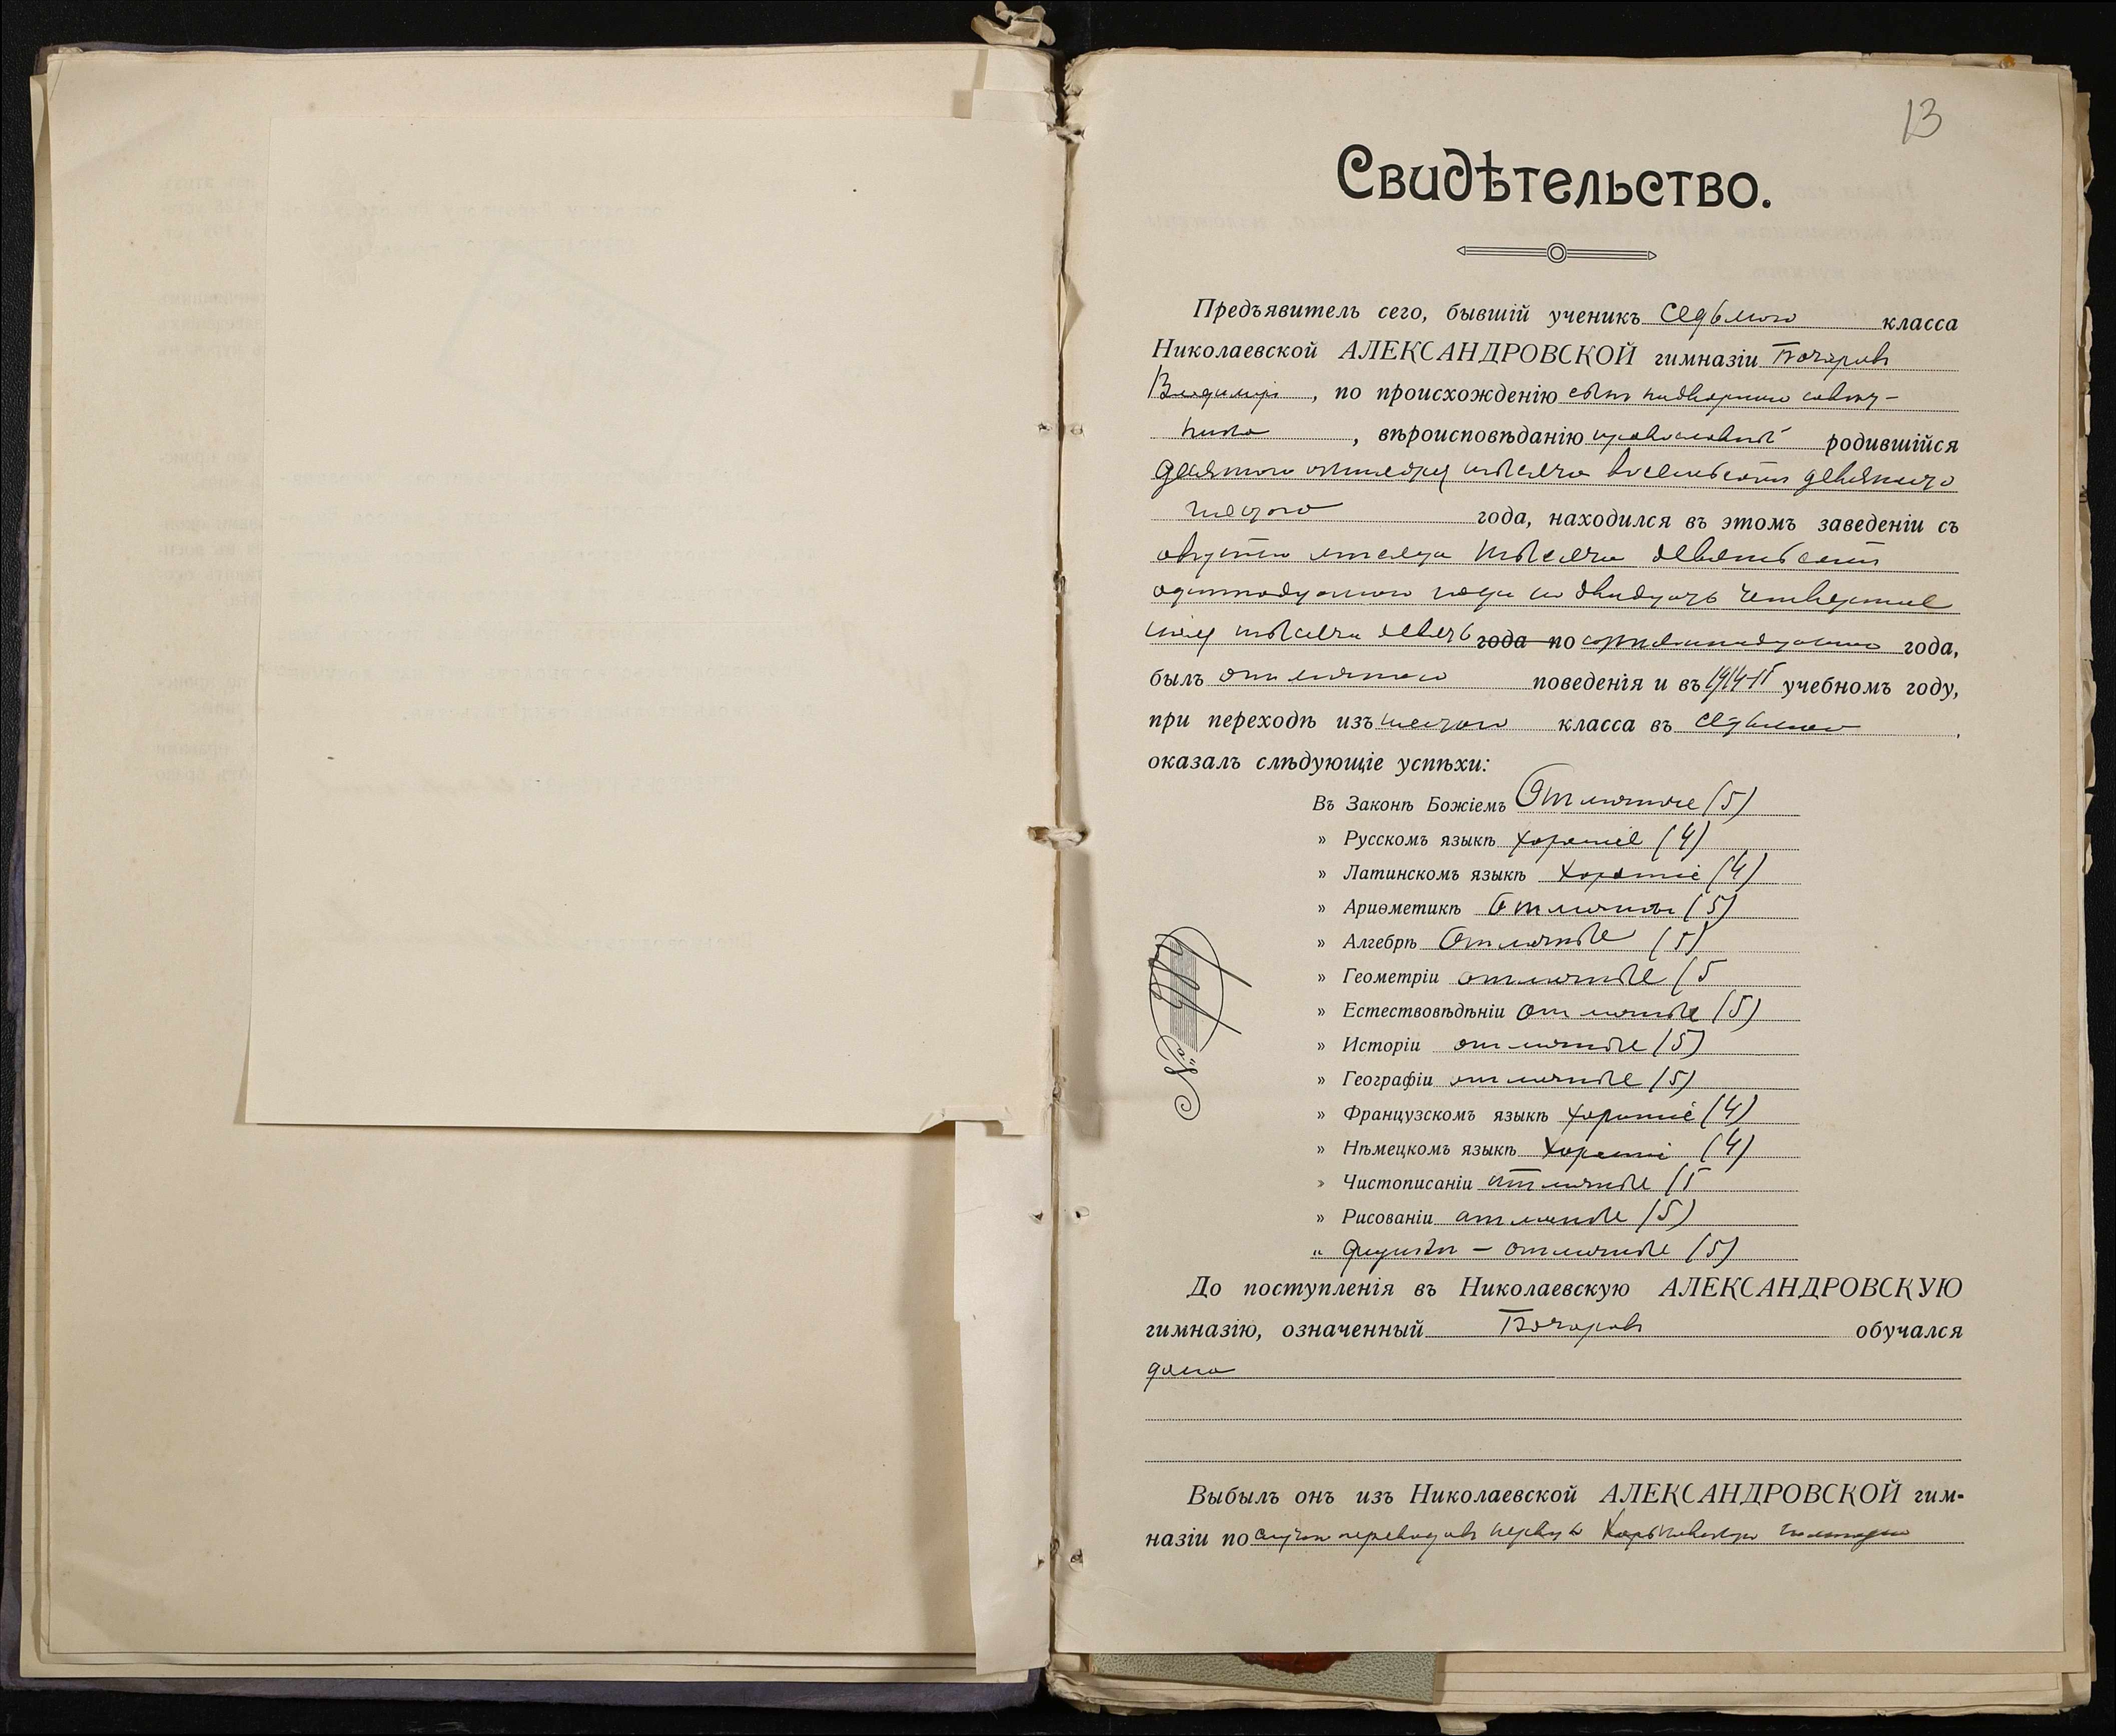 13
Свидѣтельство.
Предъявитель сего, бывшій ученикъ седьмого класса
Николаевской АЛЕКСАНДРОВСКОЙ гимназіи Бочаровъ
Владимiръ, по происхожденію сынъ надворнаго совѣт-
ника, вѣроисповѣданію православный родившійся
девятаго октября тысяча восемьсотъ девяносто
шестого года, находился въ этомъ заведеніи съ
августа мѣсяца тысяча девятьсотъ
одиннадцатаго года по двадцать четвертое
тысяча девять года по сотъ пятнадцатаго года,
былъ отличнаго поведенія и въ 1914-15 учебномъ году,
при переходѣ изъ шестого класса въ седьмой,
оказалъ слѣдующіе успѣхи:
Въ Законѣ Божіемъ Отличные (5)
» Русскомъ языкѣ хорошіе (4)
» Латинскомъ языкѣ хорошіе (4)
» Ариѳметикѣ Отличные (5)
» Алгебрѣ Отличные (5)
» Геометріи отличные (5
» Естествовѣдѣніи отличные (5)
» Исторіи отличные (5)
» Географіи отличные (5)
» Французскомъ языкѣ хорошіе (4)
» Нѣмецкомъ языкѣ хорошіе (4)
» Чистописаніи отличные (5
» Рисованіи отличные (5)
" Физикѣ — отличные (5)
До поступленія въ Николаевскую АЛЕКСАНДРОВСКУЮ
гимназію, означенный Бочаровъ обучался
дома
Выбылъ онъ изъ Николаевской АЛЕКСАНДРОВСКОЙ гим-
назіи по случаю перевода въ первую Харьковскую гимназію
№